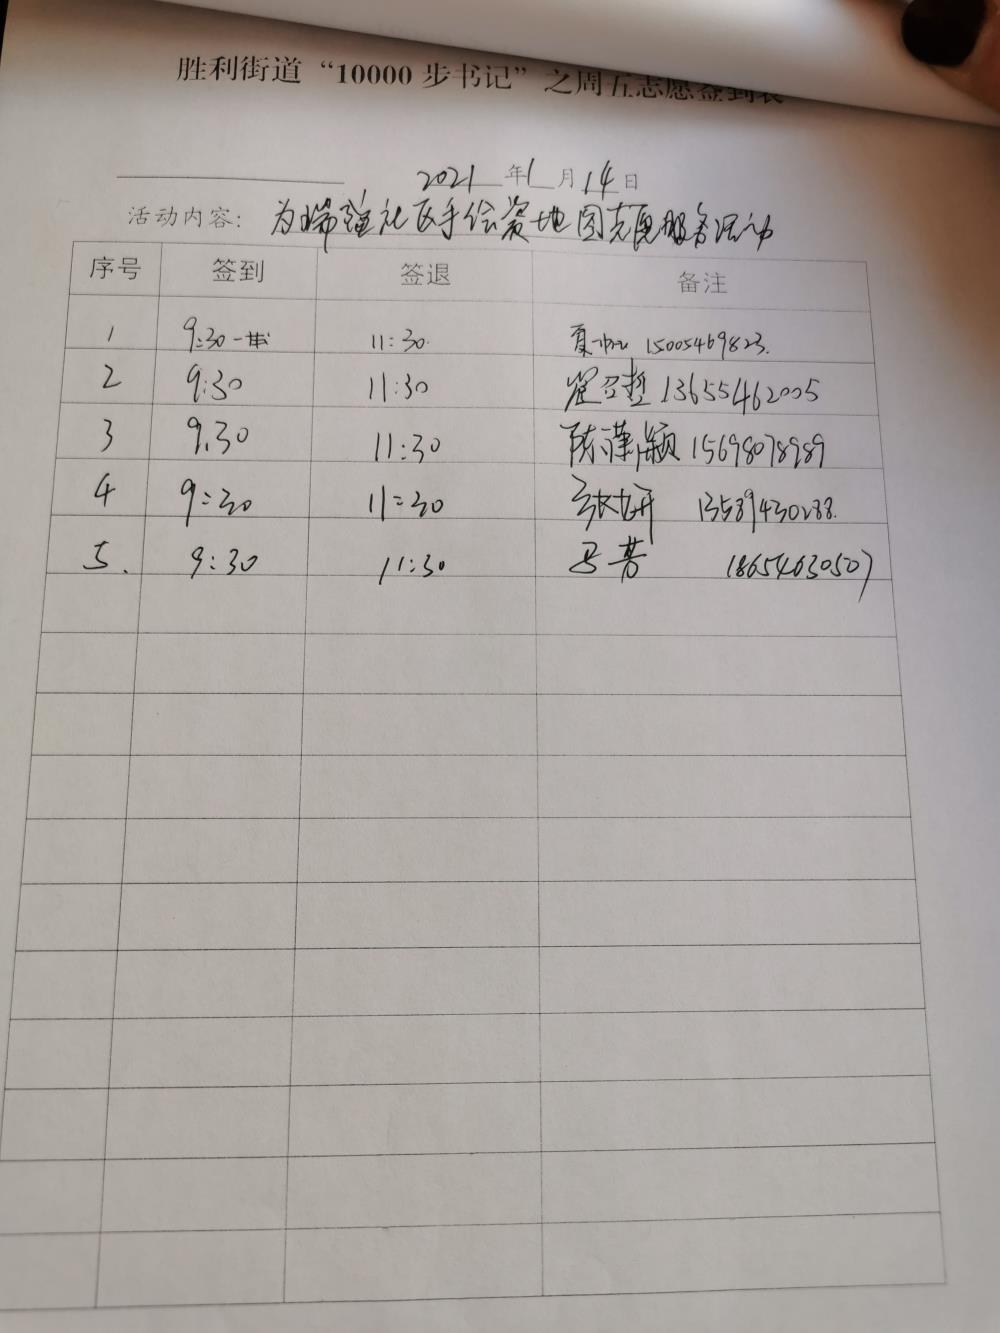 胜利街道“10000步书记”之周五志愿签到表
2021年1月14日
活动内容：为瑞 社区手绘 地图志愿服务活动
序号 签到 签退 备注
1 9:30 11:30. 夏 15005469823.
2 9:30 11:30 召哲 13655462005
3 9.30 11:30 陈 颖 15698078989
4 9:30 11:30 张 13589430288.
5. 9:30 11:30 18654630507